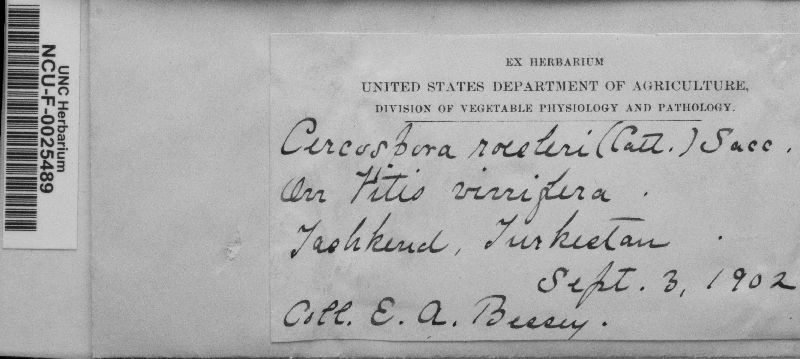 UNC Herbarium
NCU-F-0025489
EX HERBARIUM
UNITED STATES DEPARTMENT OF AGRICULTURE,
DIVISION OF VEGETABLE PHYSIOLOGY AND PATHOLOGY.
Cercospora roesleri (Catt.) Sacc.
On Vitis vinifera.
Tashkend, Turkestan.
Sept. 3, 1902
Coll. E. A. Bessey.